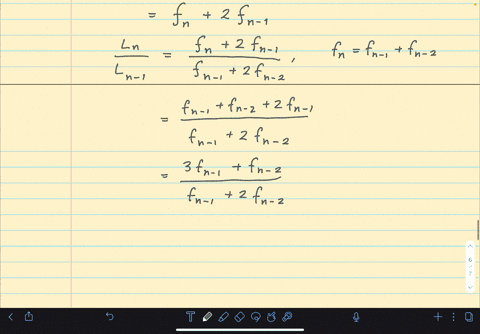 = fₙ + 2 fₙ₋₁
Lₙ / Lₙ₋₁ = (fₙ + 2 fₙ₋₁) / (fₙ₋₁ + 2 fₙ₋₂), fₙ = fₙ₋₁ + fₙ₋₂
= (fₙ₋₁ + fₙ₋₂ + 2 fₙ₋₁) / (fₙ₋₁ + 2 fₙ₋₂)
= (3 fₙ₋₁ + fₙ₋₂) / (fₙ₋₁ + 2 fₙ₋₂)